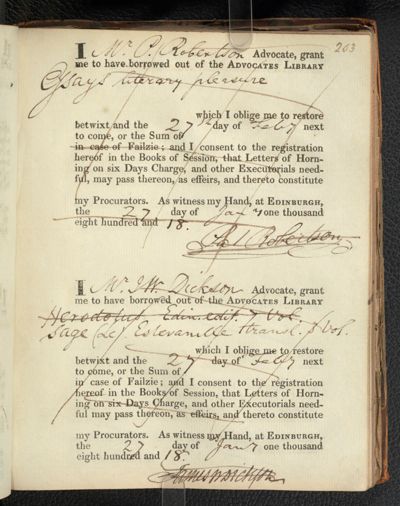 203
I Mr. P. Robertson Advocate, grant
me to have borrowed out of the ADVOCATES LIBRARY
Essays literary pleasure
which I oblige me to restore
betwixt and the 27th day of Feby next
to come, or the Sum of
in case of Failzie; and I consent to the registration
hereof in the Books of Session, that Letters of Horn-
ing on six Days Charge, and other Executorials need-
ful, may pass thereon, as effeirs, and thereto constitute
my Procurators. As witness my Hand, at EDINBURGH,
the 27 day of Jany one thousand
eight hundred and 18.
Robertson
I Mr. J.W. Dickson Advocate, grant
me to have borrowed out of the ADVOCATES LIBRARY
Herodotus Edin. edit. 7 Vol.
Sage (Le) Estevanille transl. Vol.
which I oblige me to restore
betwixt and the 27 day of Feby next
to come, or the Sum of
in case of Failzie; and I consent to the registration
hereof in the Books of Session, that Letters of Horn-
ing on six Days Charge, and other Executorials need-
ful may pass thereon, as effeirs, and thereto constitute
my Procurators. As witness my Hand, at EDINBURGH,
the 27 day of Jany one thousand
eight hundred and 18.
James W Dickson